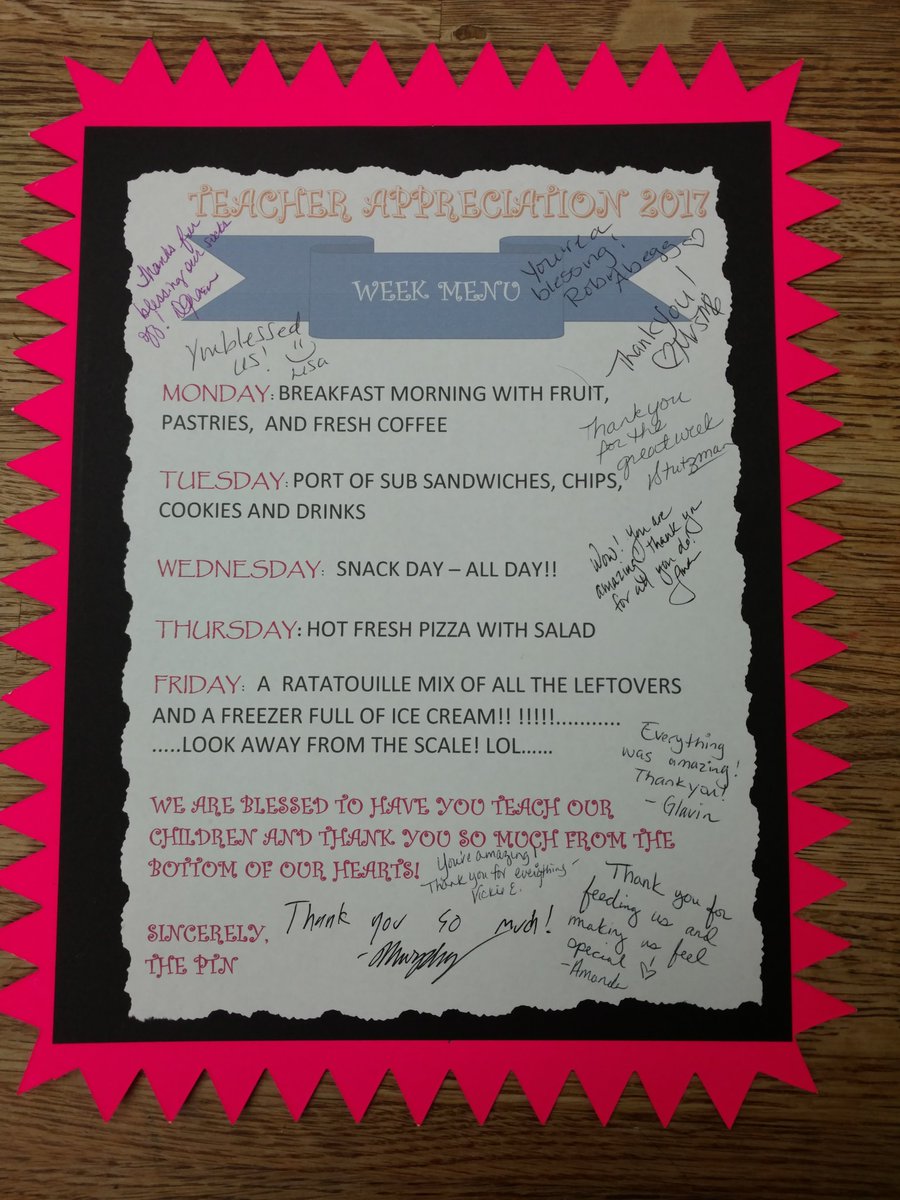 TEACHER APPRECIATION 2017
WEEK MENU
Thanks for
blessing our socks
off.
You're a
blessing!
Robin Abegg
Thank you!
You blessed
us!
Lisa
MONDAY: BREAKFAST MORNING WITH FRUIT,
PASTRIES, AND FRESH COFFEE
Thank you
for the
great week
Stutzman
TUESDAY: PORT OF SUB SANDWICHES, CHIPS,
COOKIES AND DRINKS
Wow! You are
amazing thank you
for all you do!
WEDNESDAY: SNACK DAY – ALL DAY!!
THURSDAY: HOT FRESH PIZZA WITH SALAD
FRIDAY: A RATATOUILLE MIX OF ALL THE LEFTOVERS
AND A FREEZER FULL OF ICE CREAM!! !!!!!...........
.....LOOK AWAY FROM THE SCALE! LOL......
Everything
was amazing!
Thank you!
- Glavin
WE ARE BLESSED TO HAVE YOU TEACH OUR
CHILDREN AND THANK YOU SO MUCH FROM THE
BOTTOM OF OUR HEARTS!
You're amazing!
Thank you for everything-
Vickie E.
Thank you for
feeding us and
making us feel
special!
-Amanda
Thank you so much!
- Murphy
SINCERELY,
THE PTN